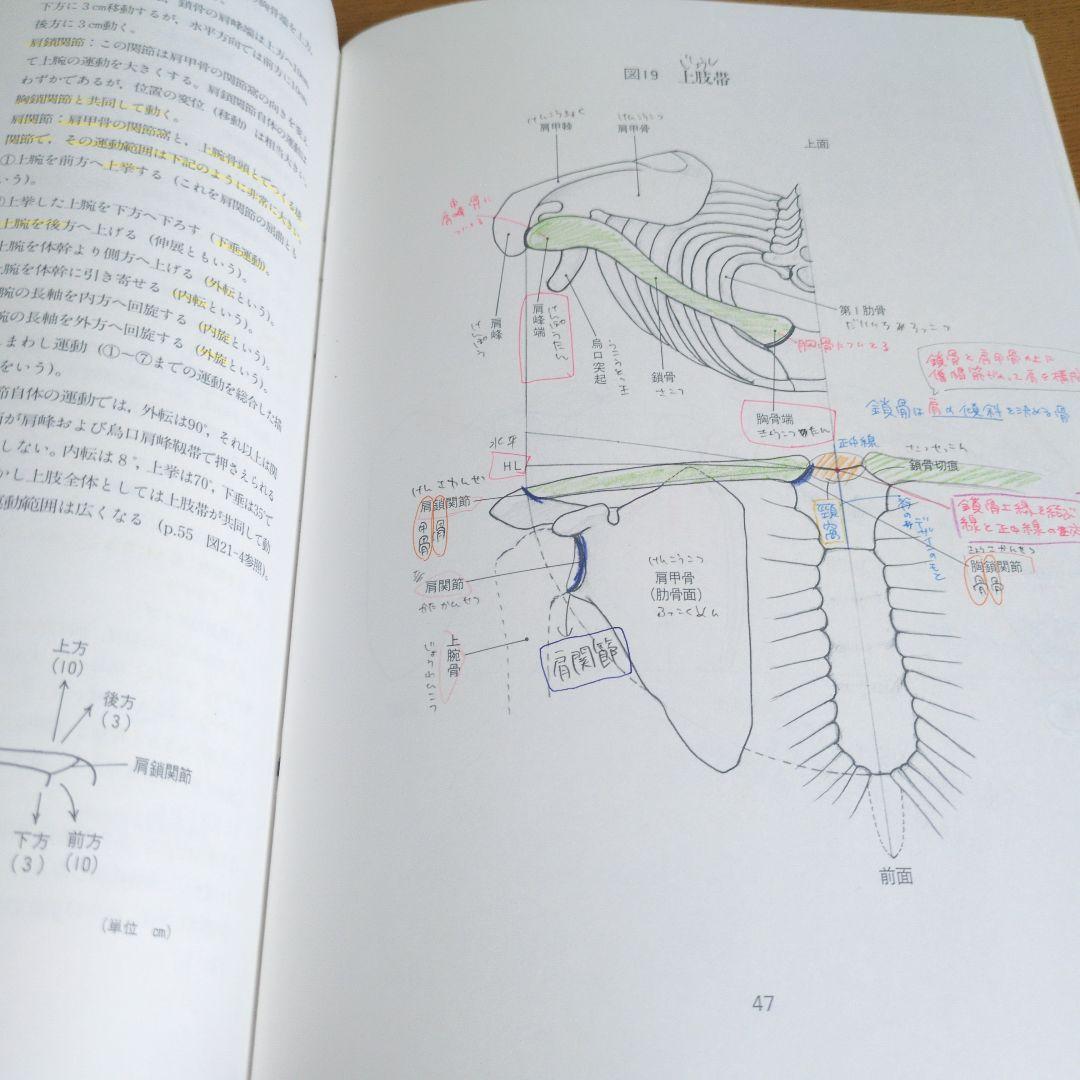 下方に3cm移動するが，水平方向では前方に10cm
後方に3cm動く。
肩鎖関節：この関節は肩甲骨の関節窩の向きを変え
て上腕の運動を大きくする。肩鎖関節自体の運動は
わずかであるが，位置の変位（移動）は相当大きい。
胸鎖関節と共同して動く。
肩関節：肩甲骨の関節窩と，上腕骨頭とでつくる
関節で，その運動範囲は下記のように非常に大きい。
①上腕を前方へ上挙する（これを肩関節の屈曲とも
いう）。
上挙した上腕を下方へ下ろす（下垂運動）。
上腕を後方へ上げる（伸展ともいう）。
上腕を体幹より側方へ上げる（外転という）。
腕を体幹に引き寄せる（内転という）。
腕の長軸を内方へ回旋する（内旋という）。
の長軸を外方へ回旋する（外旋という）。
まわし運動（①〜⑦までの運動を総合した描
をいう）。
節自体の運動では，外転は90°，それ以上は関
が肩峰および烏口肩峰靱帯で押さえられる
しない。内転は8°，上挙は70°，下垂は35で
かし上肢全体としては上肢帯が共同して動
運動範囲は広くなる（p.55 図21-4参照）。
上方
(10)
後方
(3)
肩鎖関節
下方
(3)
前方
(10)
(単位 cm)
じょうし
図19 上肢帯
肩甲棘
けんこうこつ
肩甲骨
上面
肩峰
けんぽう
肩峰端
けんぽうたん
烏口突起
うこうとっき
鎖骨
さこつ
第1肋骨
だいいちろっこつ
胸骨についてる
胸骨端
きょうこつたん
鎖骨と肩甲骨の上に
鎖骨は肩の傾斜を決める骨
水平
HL
正中線
さこつせっこん
鎖骨切痕
肩鎖関節
甲骨
骨
頸窩
鎖骨上線を結ぶ
線と正中線の
胸鎖関節
骨
骨
肩関節
かたかんせつ
けんこうこつ
肩甲骨
(肋骨面)
ろっこつめん
上腕骨
じょうわんこつ
肩関節
前面
47